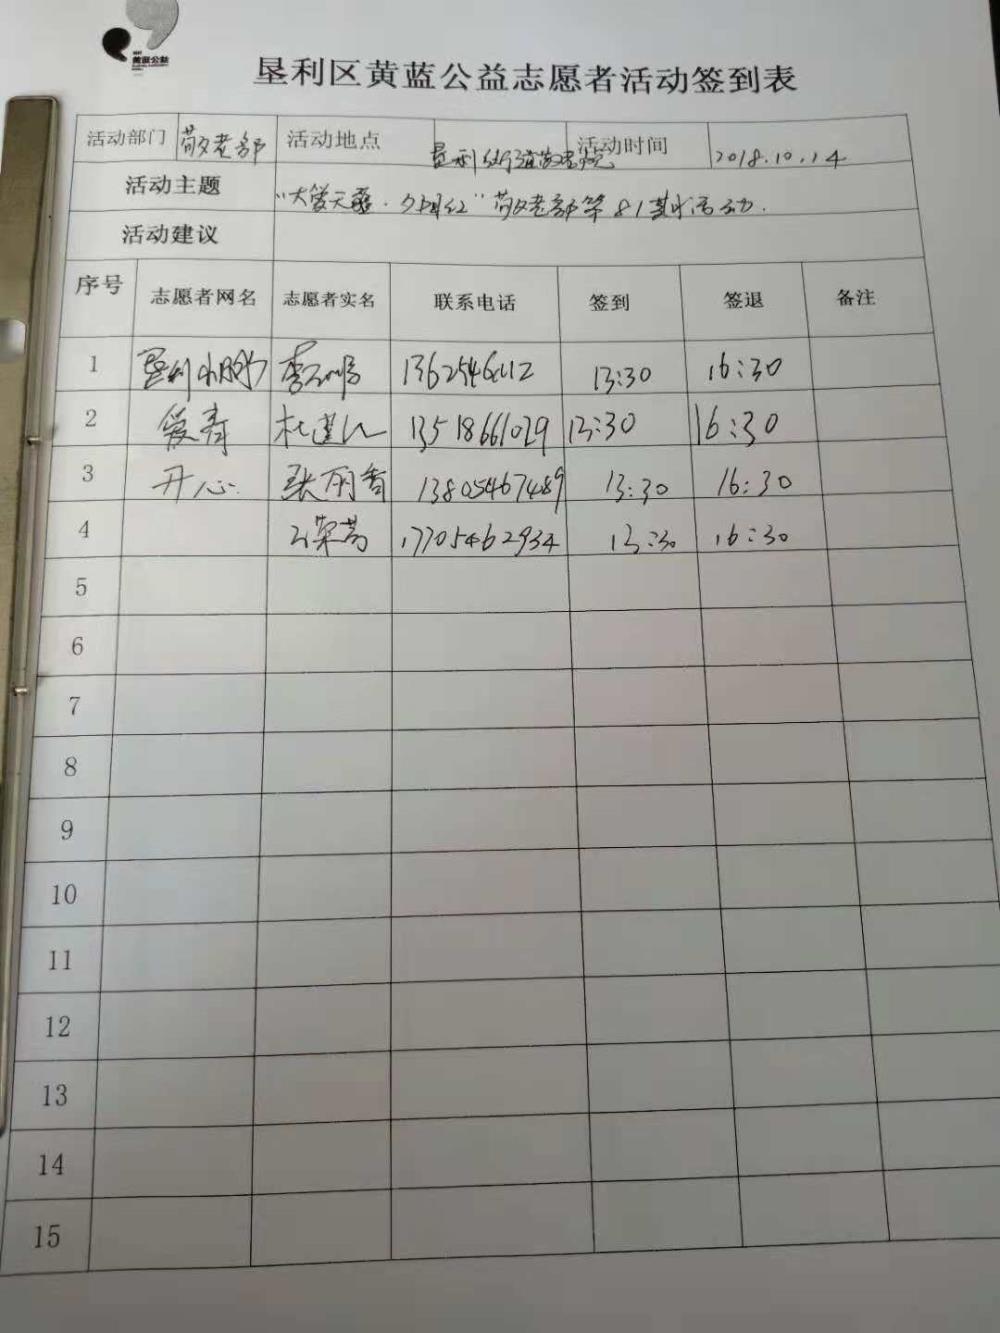 黄蓝公益
垦利区黄蓝公益志愿者活动签到表
活动部门 敬老部 活动地点 垦利街道敬老院 活动时间 2018.10.14
活动主题 "大爱无疆·夕阳红"敬老部第81期活动.
活动建议
序号 志愿者网名 志愿者实名 联系电话 签到 签退 备注
1 垦利 13:30 16:30
2 爱寿 13518661029 13:30 16:30
3 开心 张丽香 13805467489 13:30 16:30
4 17705462934 13:30 16:30
5
6
7
8
9
10
11
12
13
14
15